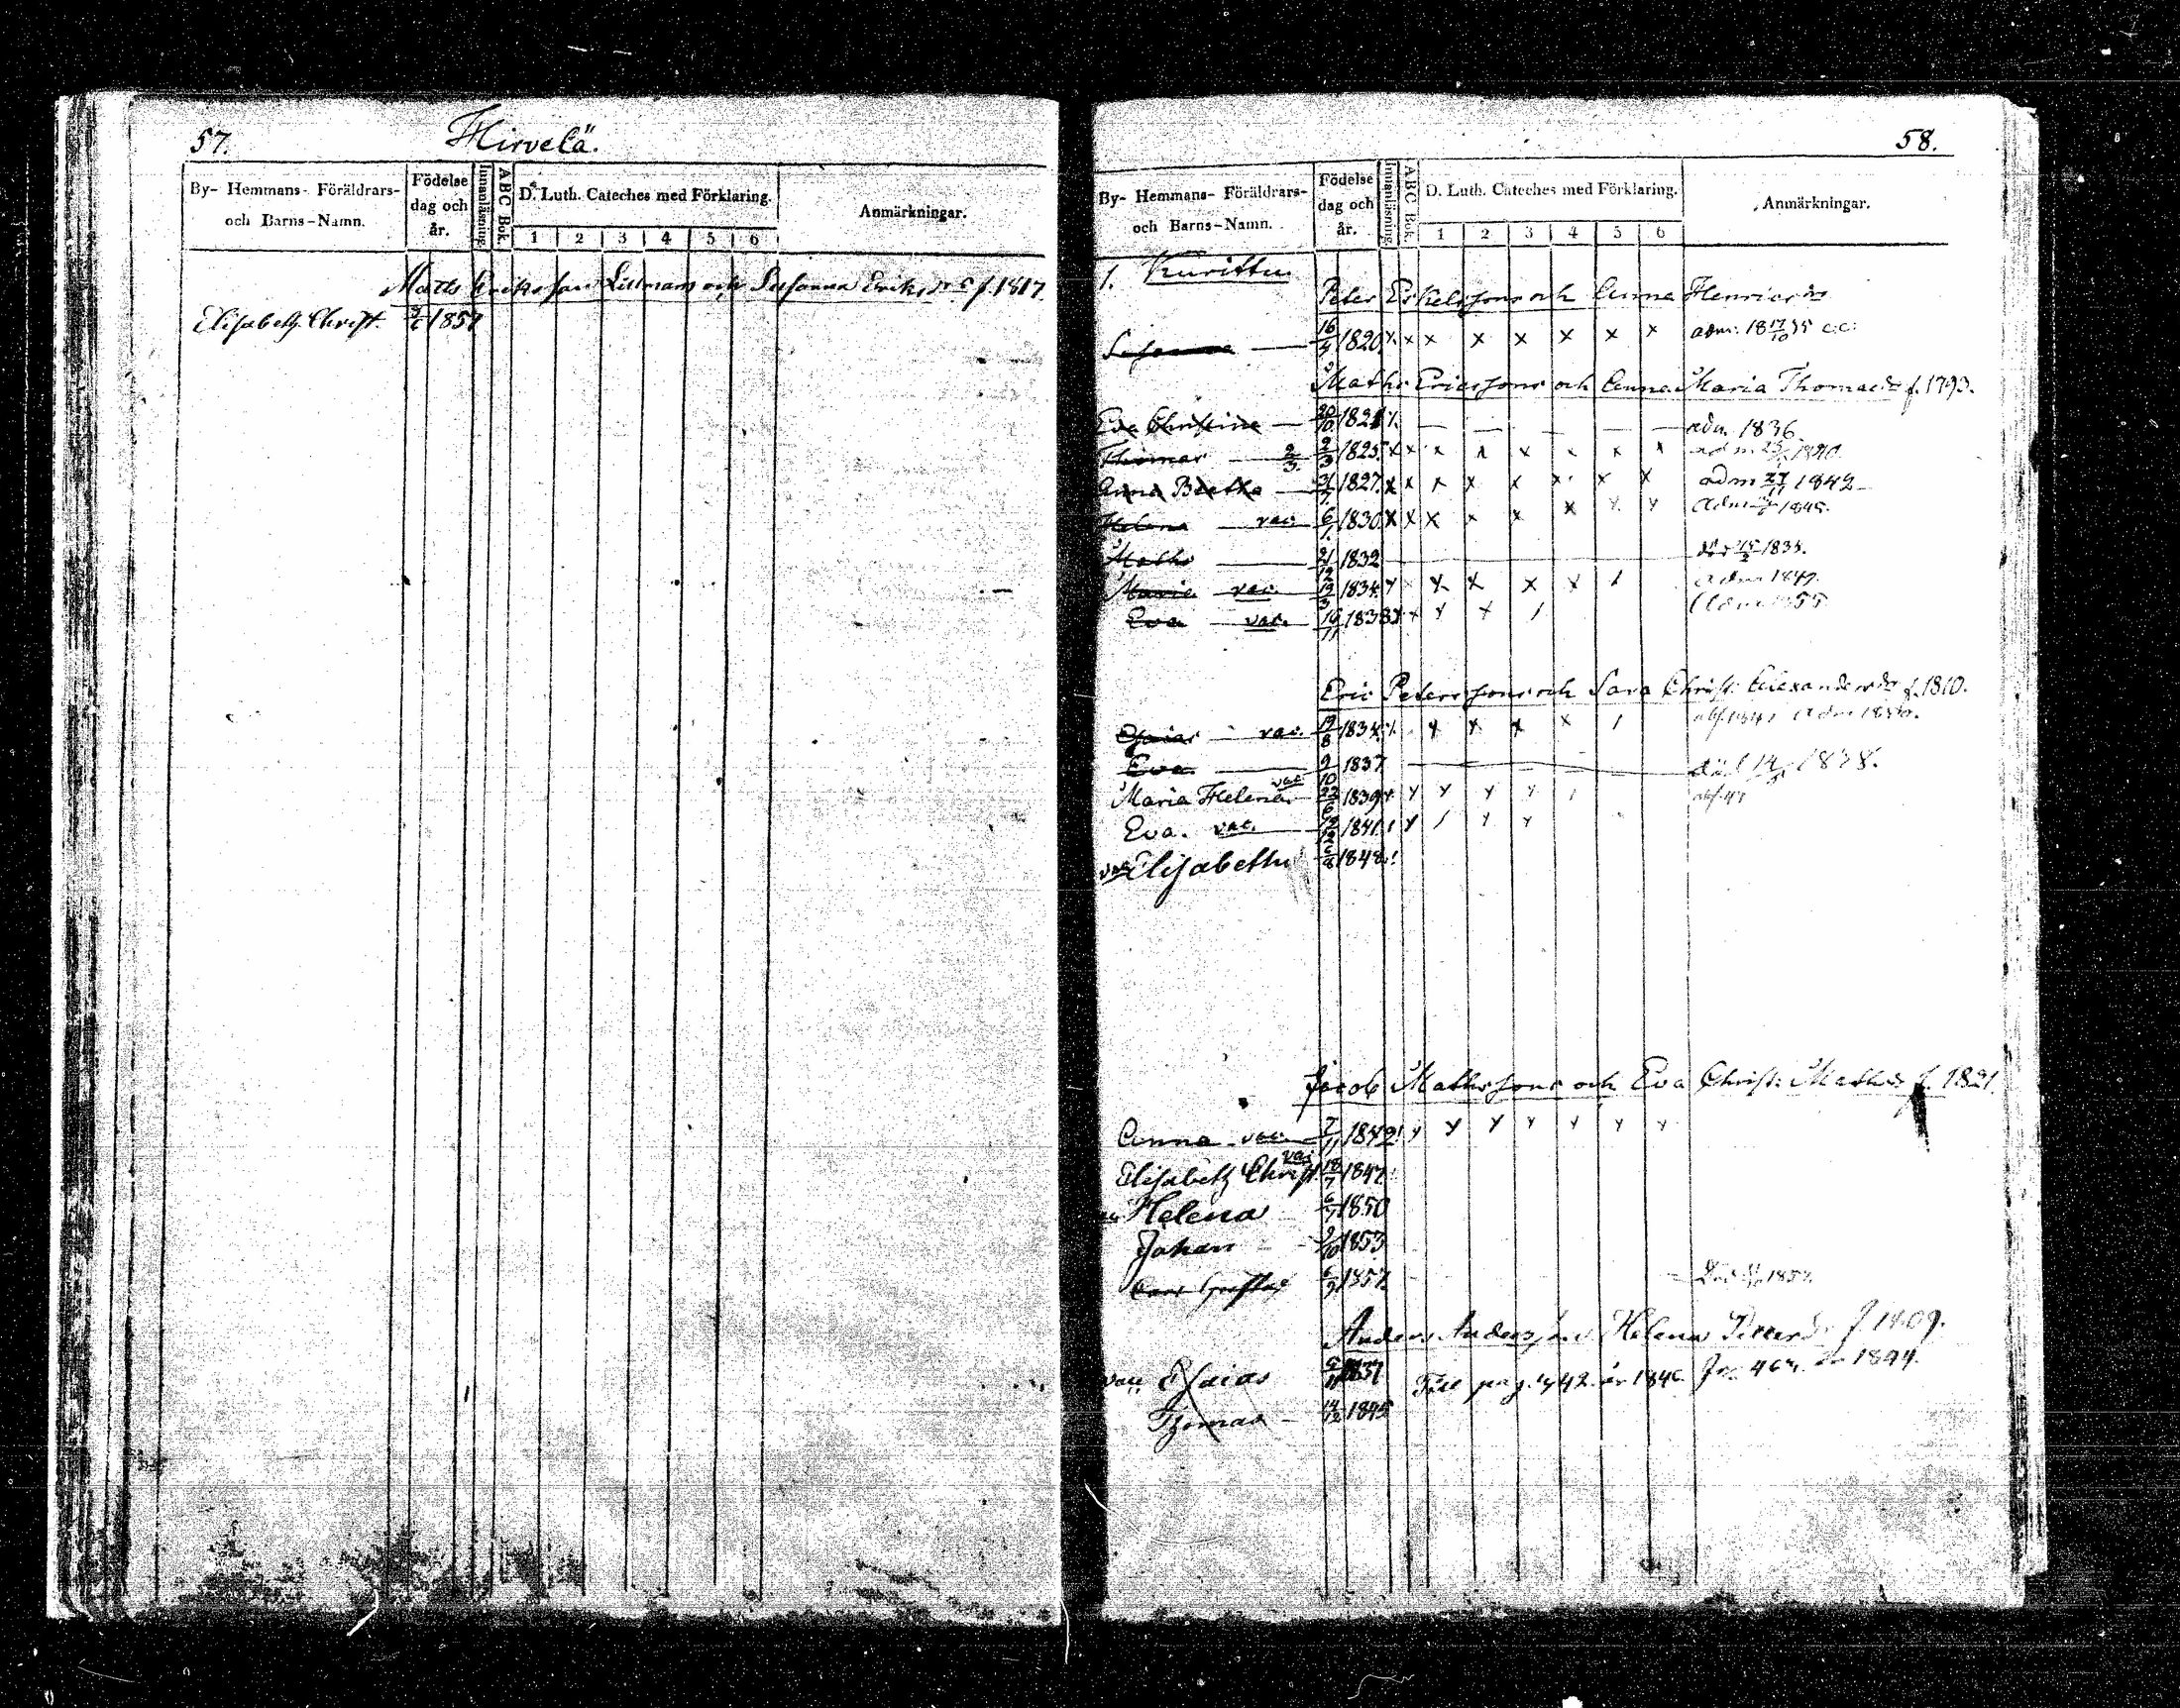 57.
Hirvelä.
By- Hemmans- Föräldrars- och Barns-Namn.
Födelse dag och år.
Innanläsning.
ABC Bok.
D. Luth. Cateches med Förklaring.
1 2 3 4 5 6
Anmärkningar.
Matts Eriksson och Susanna Eriksdr f. 1817.
Elisabeth Christ. 1857
58.
By- Hemmans- Föräldrars- och Barns-Namn.
Födelse dag och år.
Innanläsning.
ABC Bok.
D. Luth. Cateches med Förklaring.
1 2 3 4 5 6
Anmärkningar.
1. Kurittu
Peter Eskelssons och Anna Henricsdr
Susanna 16/4 1820 x x x x x x x x adm. 18 17/10 35 c.c.
Maths Ericssons och Anna Maria Thomasdr f. 1793.
Eva Christina 20/10 1821 adm. 1836.
Thomas 2/3 2/3 1825 x x x x x x x x adm 1840.
Anna Beatha 31/7 1827 x x x x x x x x adm 1842
Helena vac. 6/1 1830 x x x x x x x x adm 1845.
Maths 21/12 1832 1833.
Maria vac. 19/3 1834 adm 1849.
Eva vac. 14/11 1838 adm 1855
Eric Peterssons och Sara Christ. Alexandersdr f. 1810.
Esaias vac. 19/8 1834 adm 1850.
Eva 9/10 1837 död 1838.
Maria Helena vac 22/6 1839
Eva. vac. 19/12 1841
vac Elisabetha 6/8 1848
Jacob Mathssons och Eva Christ. Mathsdr f. 1821.
Anna vac. 7/11 1842
Elisabeth Christ. vac 18/7 1847
Helena 6/7 1850
Johan 9/10 1853
Carl Gustaf 6/9 1857 Död 1857
Anders Andersson Helena Petersdr f. 1809.
vac Esaias 1837 Till pag. 442 år 1846 Fr. 464 1844.
Thomas 14/12 1845